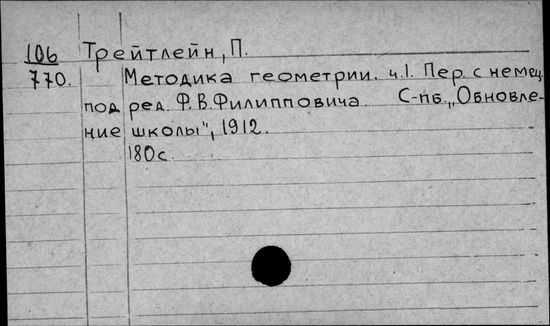 106 Трейтлейн, П.
770. Методика геометрии. ч.1. Пер. с немец.
под ред. Ф.В.Филипповича. С-пб. „Обновле-
ние школы", 1912.
180с.